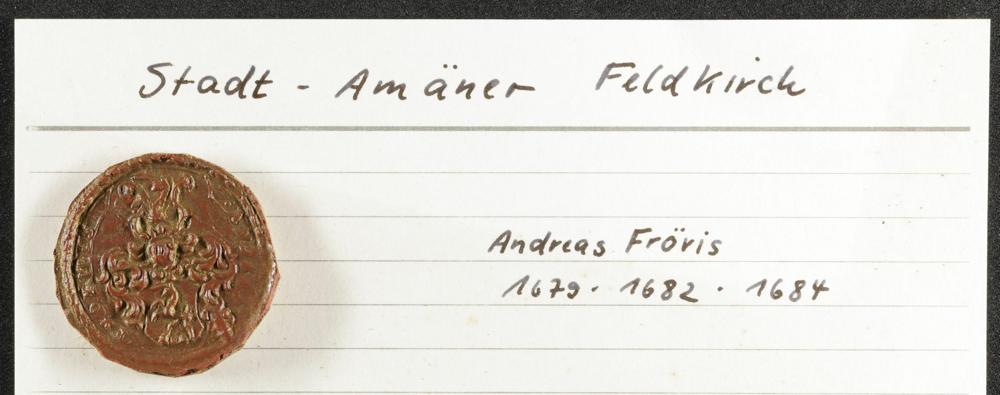 Stadt - Amäner Feldkirch
Andreas Fröris
1679 · 1682 · 1684